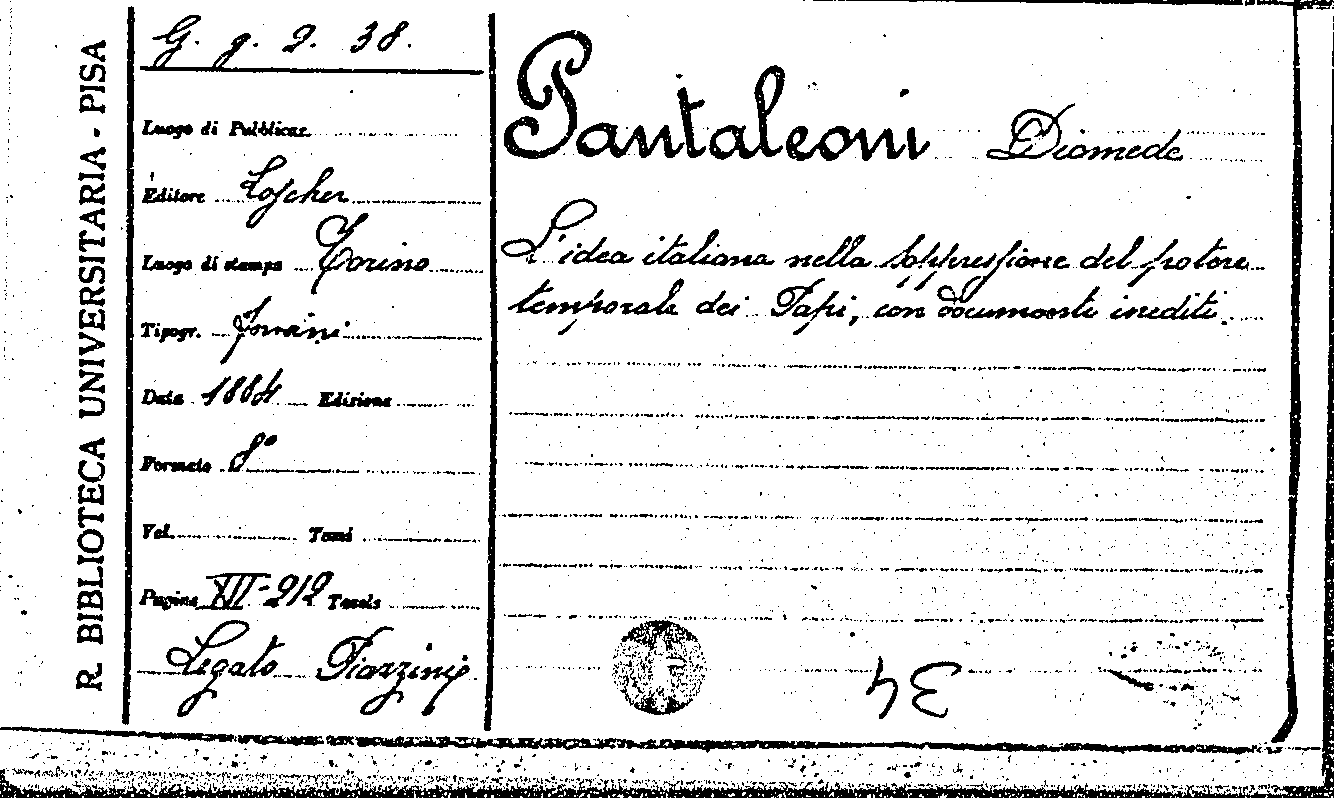 R. BIBLIOTECA UNIVERSITARIA - PISA
G. g. 2. 38.
Luogo di Pubblicaz.
Editore Loscher
Luogo di stampa Torino
Tipogr.
Data 1884 Edizione
Formato 8°
Vol. Tomi
Pagine XII-212 Tavole
Legato Piazzini
Pantaleoni Diomede
L'idea italiana nella soppressione del potere
temporale dei Papi, con documenti inediti.
34